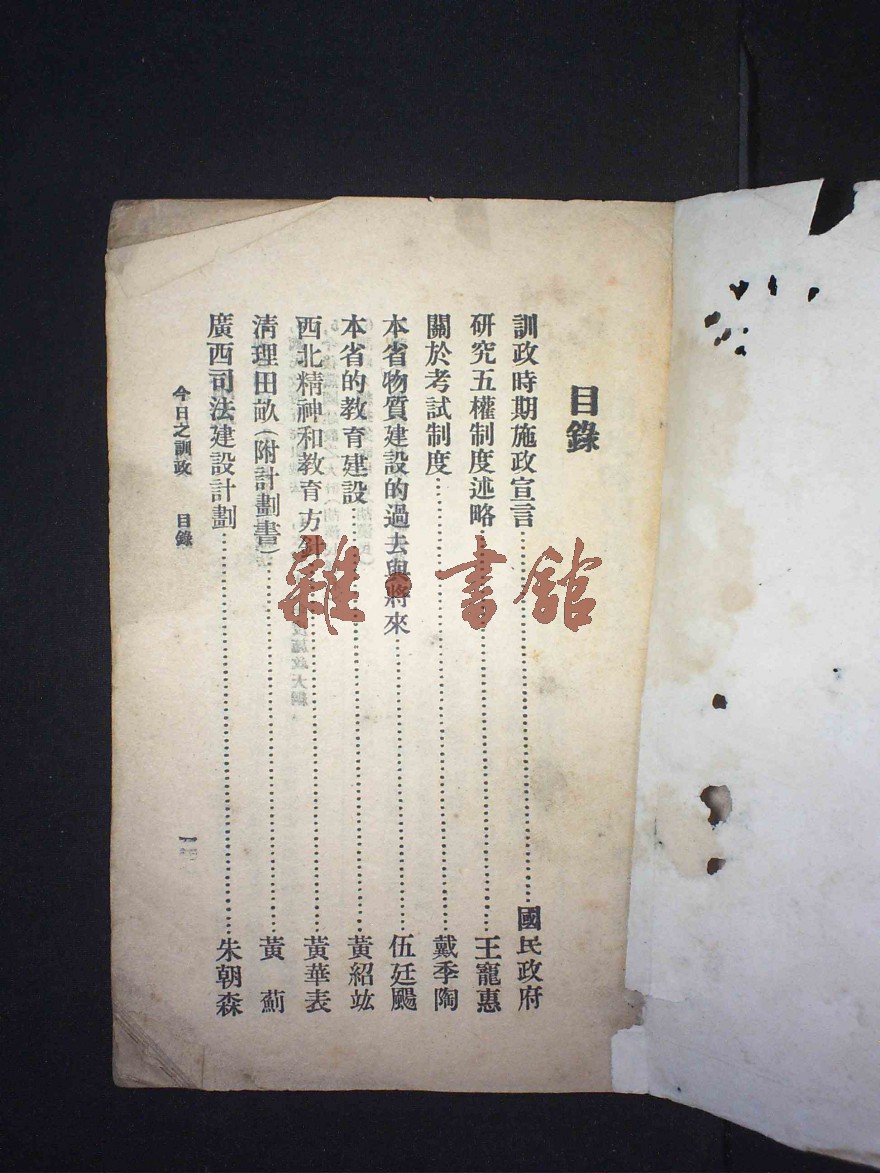 目錄
訓政時期施政宣言……國民政府
研究五權制度述略……王寵惠
關於考試制度……戴季陶
本省物質建設的過去與將來……伍廷颺
本省的教育建設……黃紹竑
西北精神和教育方針……黃華表
清理田畝(附計劃書)……黃薊
廣西司法建設計劃……朱朝森
今日之訓政 目錄
一
雜·書館